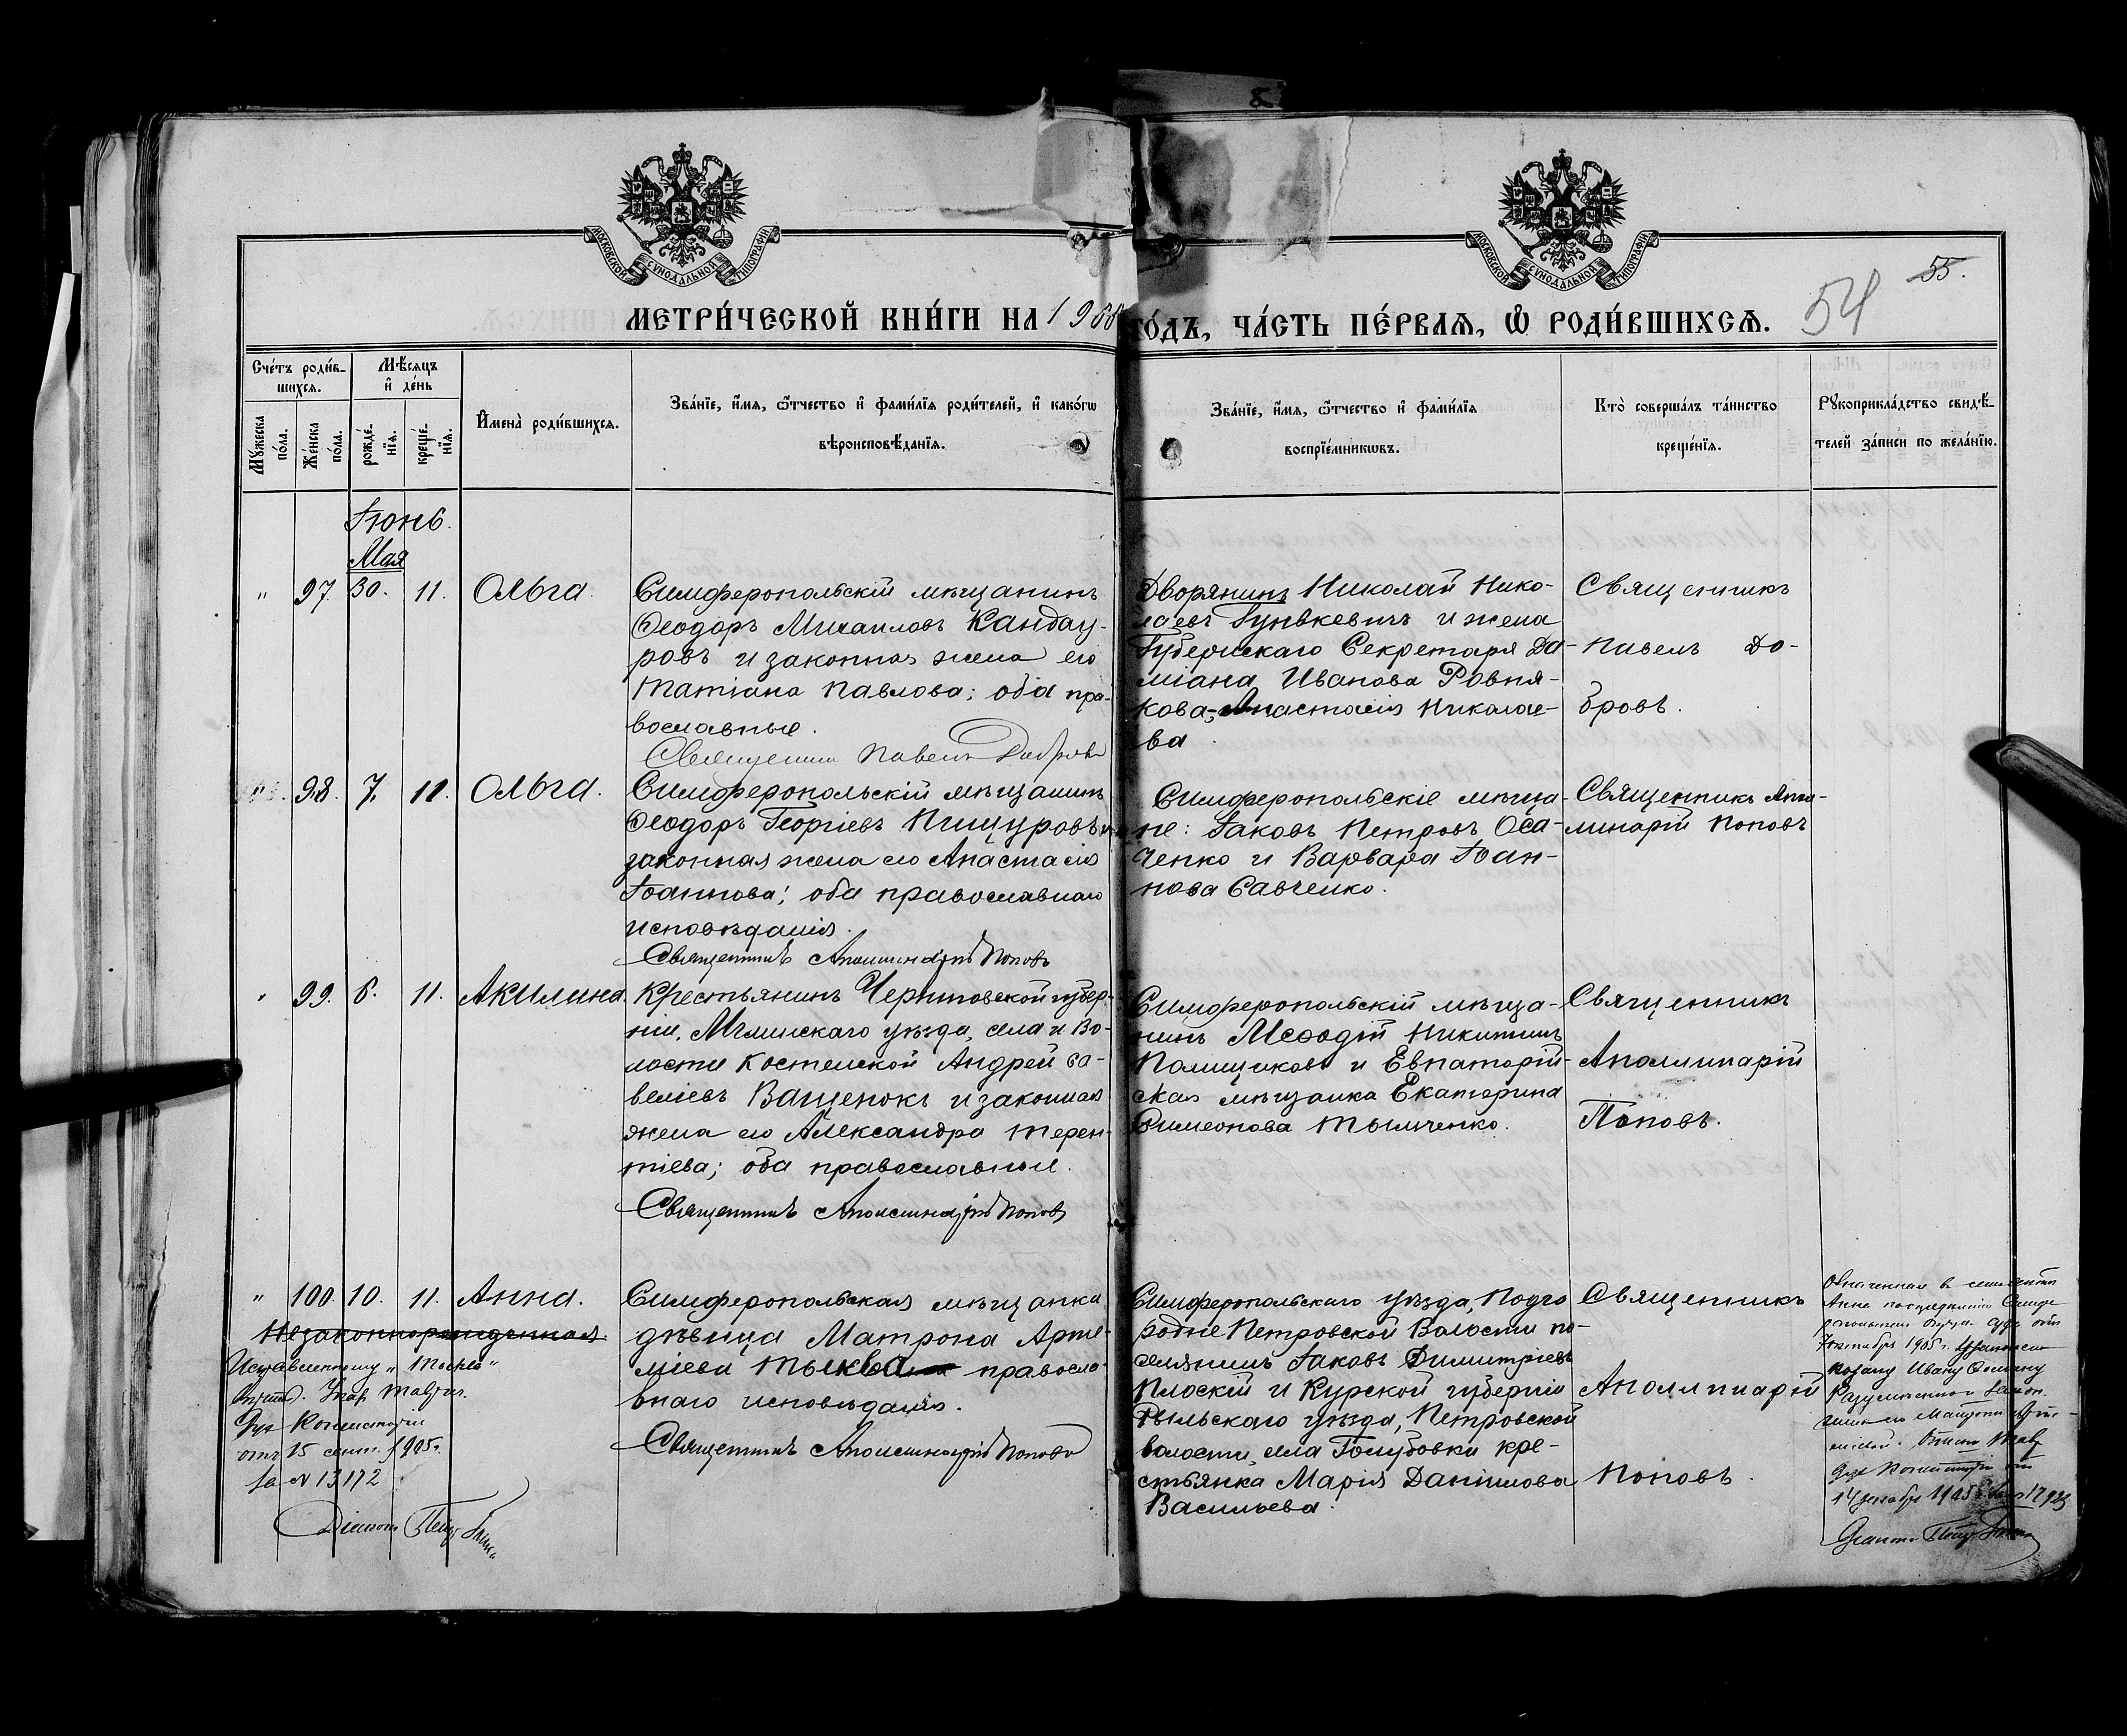 МОСКОВСКОЙ СУНОДАЛЬНОЙ ТИПОГРАФІИ
МОСКОВСКОЙ СУНОДАЛЬНОЙ ТИПОГРАФІИ
55.
54
МЕТРИ́ЧЕСКОЙ КНИ́ГИ НА 190 ГО́ДЪ, ЧА́СТЬ ПЕ́РВАѦ, Ѡ҆ РОДИ́ВШИХСѦ.
Сче́тъ роди́в-
шихсѧ.
Мꙋ́жеска
по́ла.
Же́нска
по́ла.
Мѣ́сѧцъ
и҆ де́нь
рожде́-
нїѧ.
креще́-
нїѧ.
И҆мена̀ роди́вшихсѧ.
Зва́нїе, и҆́мѧ, ѻ҆́тчество и҆ фами́лїѧ роди́телей, и҆ како́гѡ
вѣроисповѣ́данїѧ.
Зва́нїе, и҆́мѧ, ѻ҆́тчество и҆ фами́лїѧ
воспрїе́мникѡвъ.
Кто̀ соверша́лъ та́инство
креще́нїѧ.
Рꙋкоприкла́дство свидѣ́-
телей за́писи по жела́нїю.
Іюнь.
Мая
" 97. 30. 11. Ольга.
Симферопольскій мѣщанинъ
Ѳеодоръ Михаиловъ Кандау-
ровъ и законная жена его
Татіана Павлова; оба пра-
вославные.
Священникъ Павелъ Добровъ
Дворянинъ Николай Нико-
лаевъ Гунькевичъ и жена
Губернскаго Секретаря Да-
міана Иванова Ровня-
кова, Анастасія Николае-
ва.
Священникъ
Павелъ До-
бровъ.
" 98. 7. 11. Ольга.
Симферопольскій мѣщанинъ
Ѳеодоръ Георгіевъ Пищуровъ и
законная жена его Анастасія
Іоаннова; оба православнаго
исповѣданія.
Священникъ Аполлинарій Поповъ
Симферопольскіе мѣща-
не: Іаковъ Петровъ Оса-
ченко и Варвара Іоан-
нова Савченко.
Священникъ Апол-
линарій Поповъ
" 99. 6. 11. Акилина.
Крестьянинъ Черниговской губер-
ніи, Мглинскаго уѣзда, села и Во-
лости Костеничской Андрей Са-
веліевъ Ващенокъ и законная
жена его Александра Терен-
тіева; оба православные.
Священникъ Аполлинарій Поповъ
Симферопольскій мѣща-
нинъ Меѳодій Никитинъ
Полищуковъ и Евпаторій-
ская мѣщанка Екатерина
Симеонова Тимченко.
Священникъ
Аполлинарій
Поповъ.
" 100. 10. 11. Анна.
Незаконнорожденная
Исправленному „Тыква"
Дух. Консисторіи
отъ 15 сент. 1905 г.
за N 13172
Діаконъ Петръ
Симферопольская мѣщанка
дѣвица Матрона Арте-
міева Тыква правосла-
внаго исповѣданія.
Священникъ Аполлинарій Поповъ
Симферопольскаго уѣзда, Подго-
родне Петровской Волости по-
селянинъ Іаковъ Димитріевъ
Плоскій и Курской губерніи
Рыльскаго уѣзда, Петровской
волости, села Голубовки кре-
стьянка Марія Даніилова
Васильева.
Священникъ
Аполлинарій
Поповъ.
Означенная в
Анна
7 октября 1905 г.
Ивану
Дух Консисторіи отъ
14 декабря 1905
Діаконъ Петръ